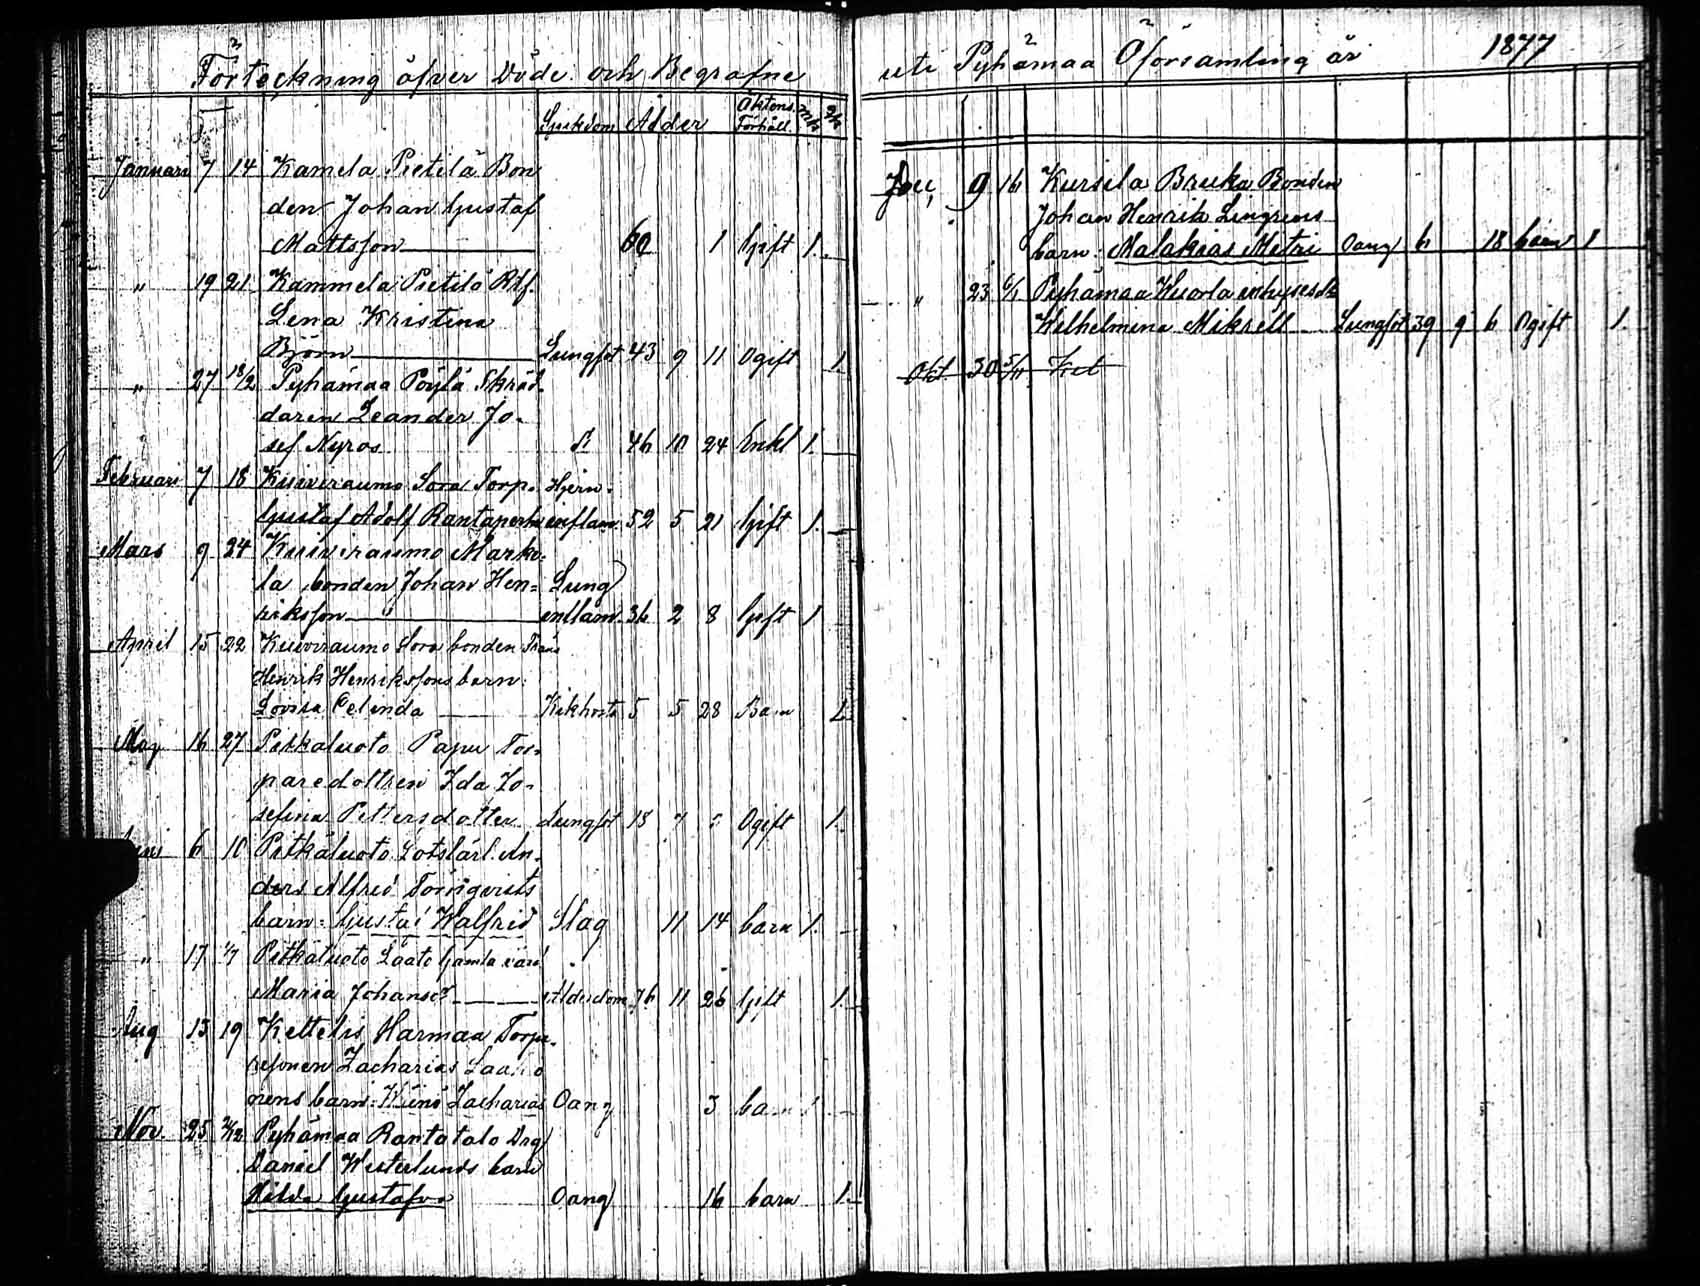 Förteckning öfver Döde och Begrafne
Sjukdom Ålder Äktens. Förhåll. Mk Qk
Januari 7 14 Kamela Pietilä Bon
den Johan Gustaf
Mattsson 60 1 Gift 1.
" 19 21 Kammela Pietilä Rtf.
Lena Kristina
Björn Lungsot 43 9 11 Ogift 1
" 27 18/2 Pyhämaa Pöylä Skräd
daren Leander Jo-
sef Nyros D 46 10 24 Enkl 1.
Februari 7 18 Kuiviraumo Sora Torp. Hjern-
Gustaf Adolf Rantaperho inflam. 52 5 21 Gift 1.
Mars 9 24 Kuiviraumo Marko-
la bonden Johan Hen= Lung
riksson inflam. 36 2 8 Gift 1
April 15 22 Kuiviraumo Sora bonden Frans
Henrik Henrikssons barn:
Lovisa Celinda Kikhosta 5 5 28 Barn 1.
Maj 16 27 Pitkäluoto Papu Tor-
paredottren Ida Jo-
sefina Pettersdotter Lungsot 18 7 Ogift 1.
Juni 6 10 Pitkäluoto Lotslärl. An-
ders Alfred Törnqvists
barn: Gustaf Walfrid Slag 11 14 barn 1.
" 17 1/7 Pitkäluoto Laato Gamla värd
Maria Johansd Ålderdom 76 11 26 Gift 1.
Aug 13 19 Kettelis Harmaa Torpa-
resonen Zacharias
nens barn: Wäinö Zacharias Oang 3 barn 1
Nov. 25 2/12 Pyhämaa Rantatalo Drg
Daniel Westerlunds barn
Hilda Gustafva Oang 16 barn 1.
uti Pyhämaa Öförsamling år 1877
Dec, 9 16 Kursila Bruka Bonden
Johan Henrik Lingrens
barn: Malakias Metri Oang 6 18 barn 1
" 23 6/1 Pyhämaa Kuorla inhyses
Wilhelmina Mikrell Lungsot 39 9 6 Ogift 1.
Okt 30 5/11 Ket